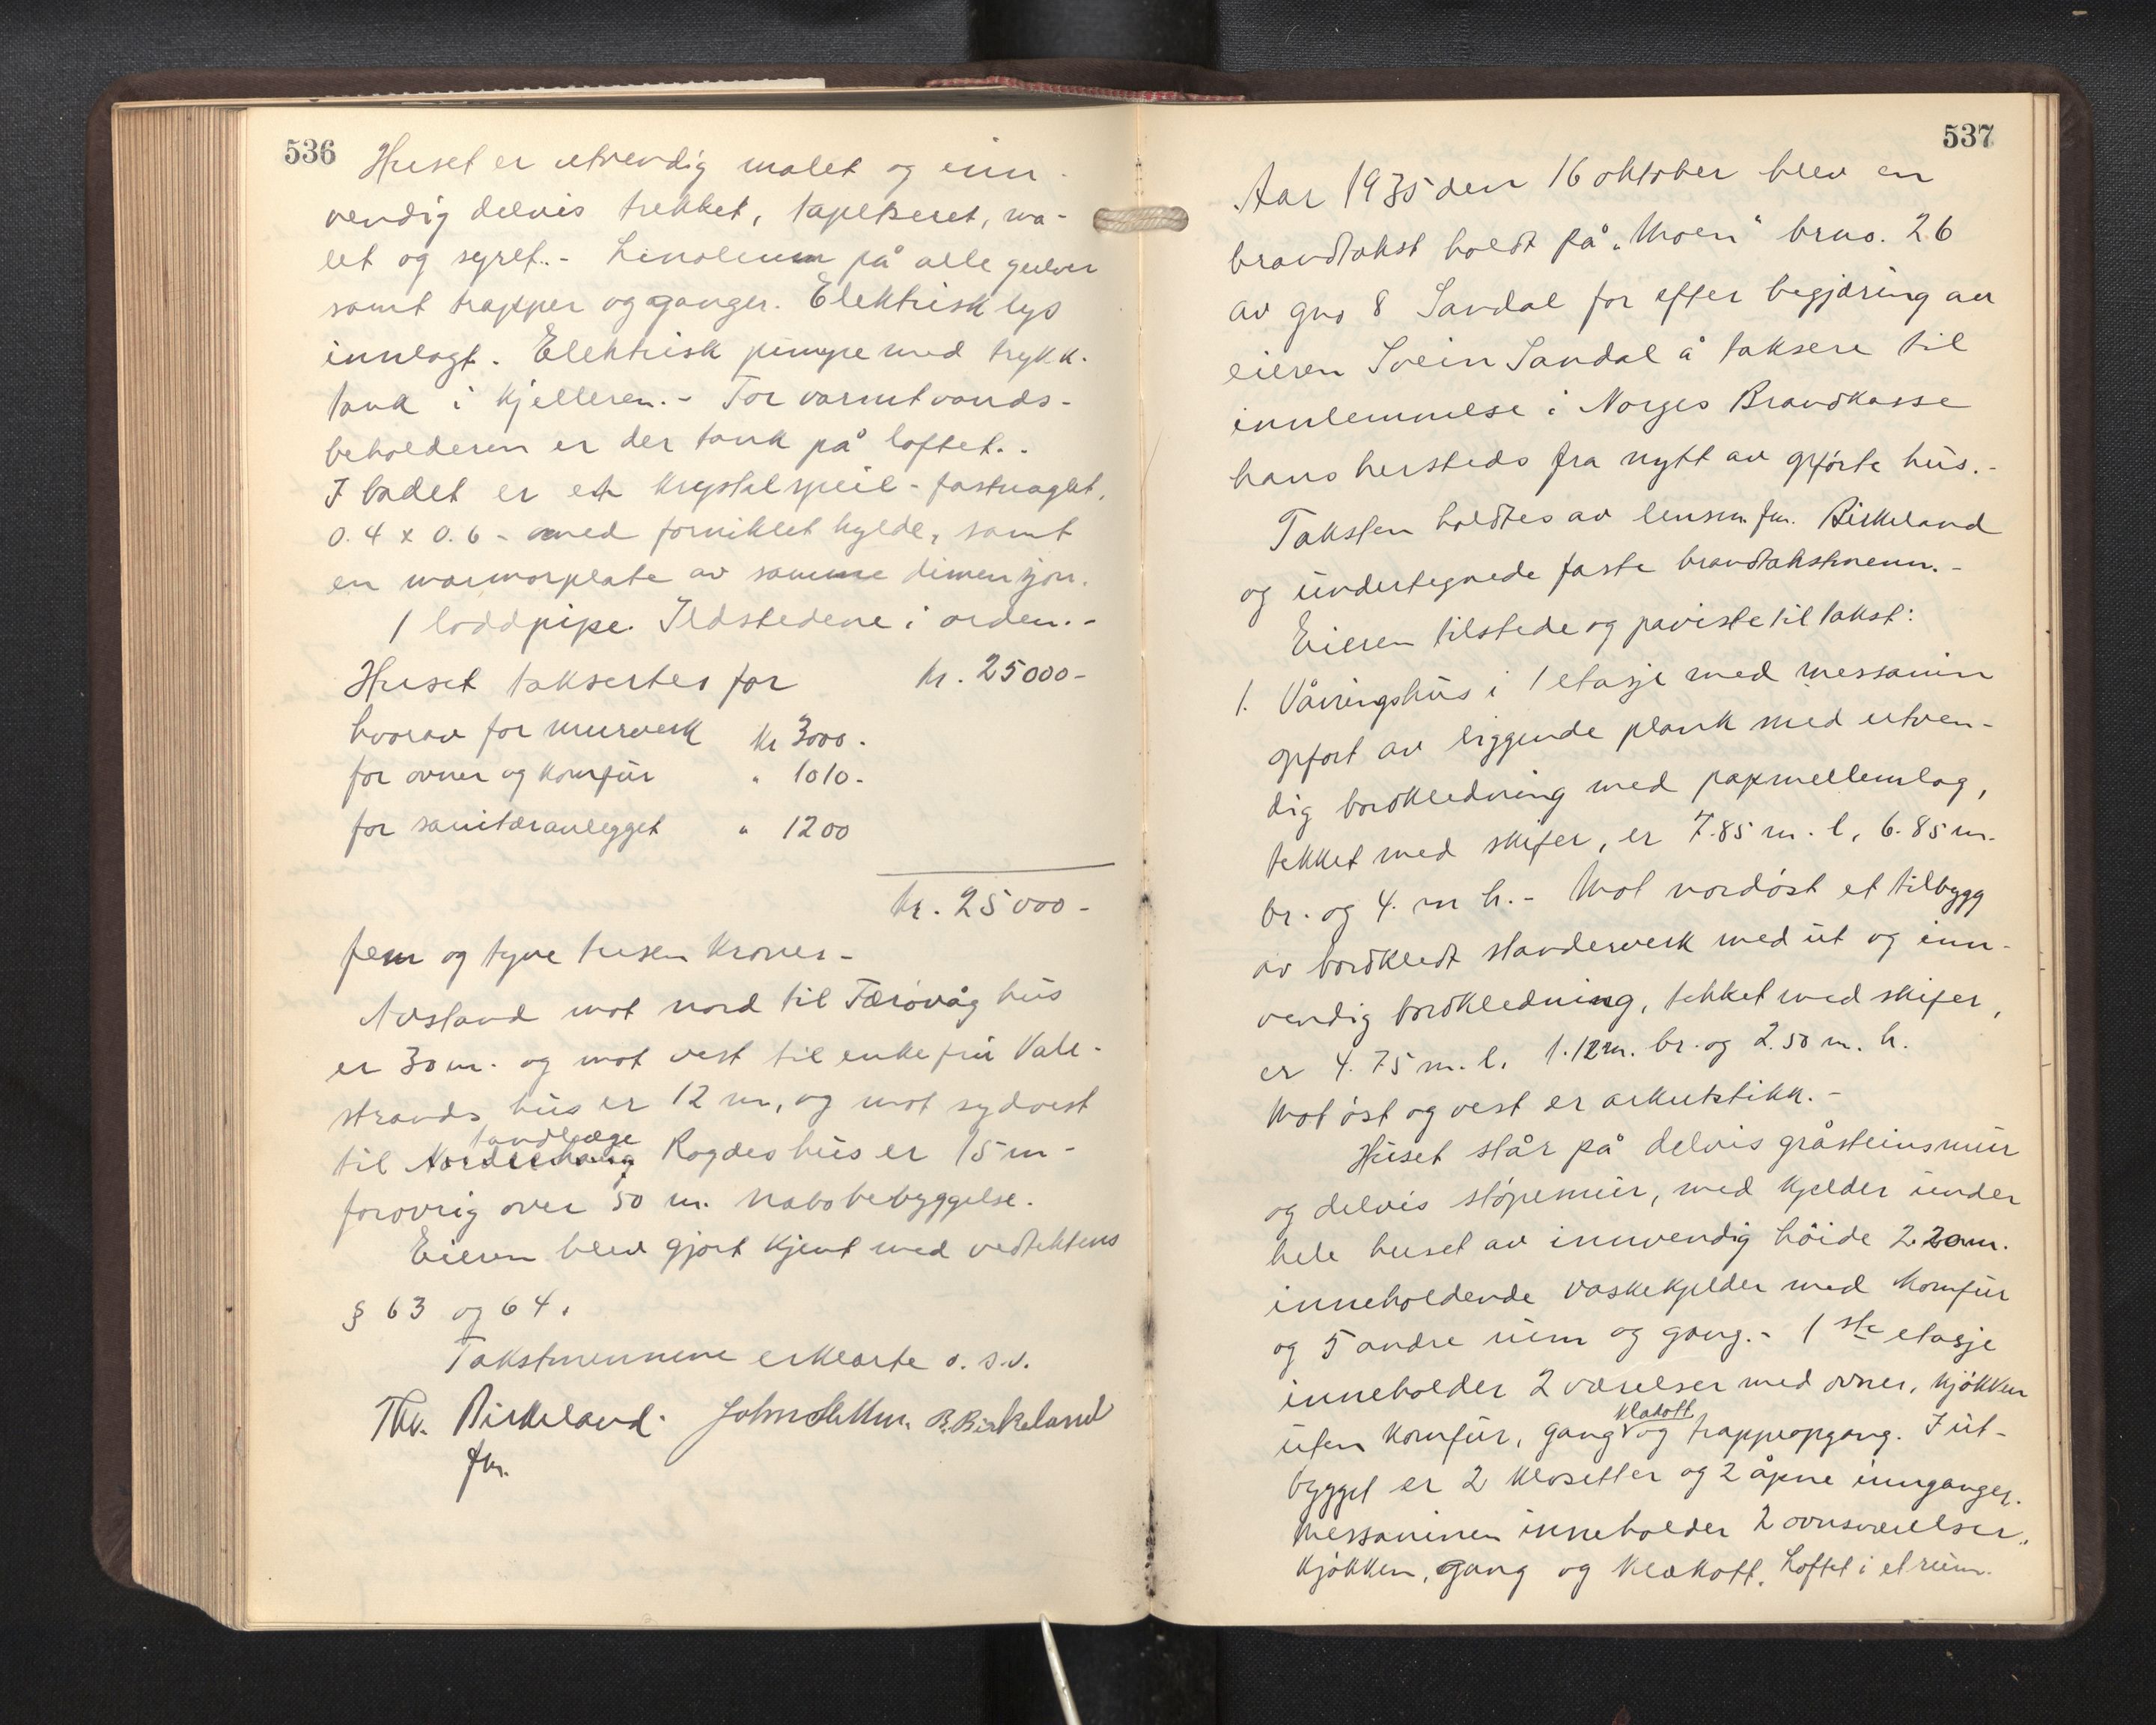 536
Huset er utvendig malet og inn-
vendig delvis trekket, tapetseret, ma-
let og syret. - Linoleum på alle gulver
samt trapper og ganger. Elektrisk lys
innlagt. Elektrisk pumpe med trykk-
tank i kjelleren. - For varmtvands-
beholderen er der tank på loftet. -
I badet er et krystalspeil - fastnaglet,
0.4 x 0.6 - med forniklet hylde, samt
en marmorplate av samme dimensjon.
1 loddpipe. Ildstedene i orden. -
Huset takseres for kr. 25000 -
hvorav for murverk kr 3000 -
for ovner og komfur " 1010 -
for sanitæranlegget " 1200
kr. 25000 -
fem og tyve tusen kroner -
Avstand mot nord til Færøvåg hus
er 30 m. og mot vest til enkefru Vale-
strands hus er 12 m, og mot sydvest
tandlæge
til Rogdes hus er 15 m -
forøvrig over 50 m. nabobebyggelse.
Eieren blev gjort kjent med vedtektens
§ 63 og 64.
Takstmennene erklærte o. s. v.
Thv. Birkeland. John B. Birkeland
fm.
537
Aar 1935 den 16 oktober blev en
brandtakst holdt på "Moen" brno. 26
av gno 8 Sandal for efter begjæring av
eieren Svein Sandal å taksere til
innlemmelse i Norges Brandkasse
hans hersteds fra nytt av opførte hus. -
Taksten holdtes av lensm. fm. Birkeland
og undertegnede faste brandtakstmenn. -
Eieren tilstede og påviste til takst:
1. Våningshus i 1 etasje med messanin
opført av liggende plank med utven-
dig bordkledning med papmellemlag,
tekket med skifer, er 7.85 m. l, 6.85 m.
br. og 4. m h. - Mot nordøst et tilbygg
av bordkledt standerverk med ut og inn-
vendig bordkledning, tekket med skifer,
er 4.75 m. l. 1.12 m. br. og 2.50 m. h.
Mot øst og vest er arkutstikk. -
Huset står på delvis gråsteinsmur
og delvis støpemur, med kjelder under
hele huset av innvendig høide 2.20 m.
inneholdende vaskekjelder med komfur
og 5 andre rum og gang. - 1ste etasje
inneholder 2 værelser med ovner, kjøkken
klækott
uten komfur, gang og trappeopgang. I ut-
bygget er 2 klosetter og 2 åpne innganger.
Messaninen inneholder 2 ovnsværelser,
kjøkken, gang og klækott. Loftet i et rum.